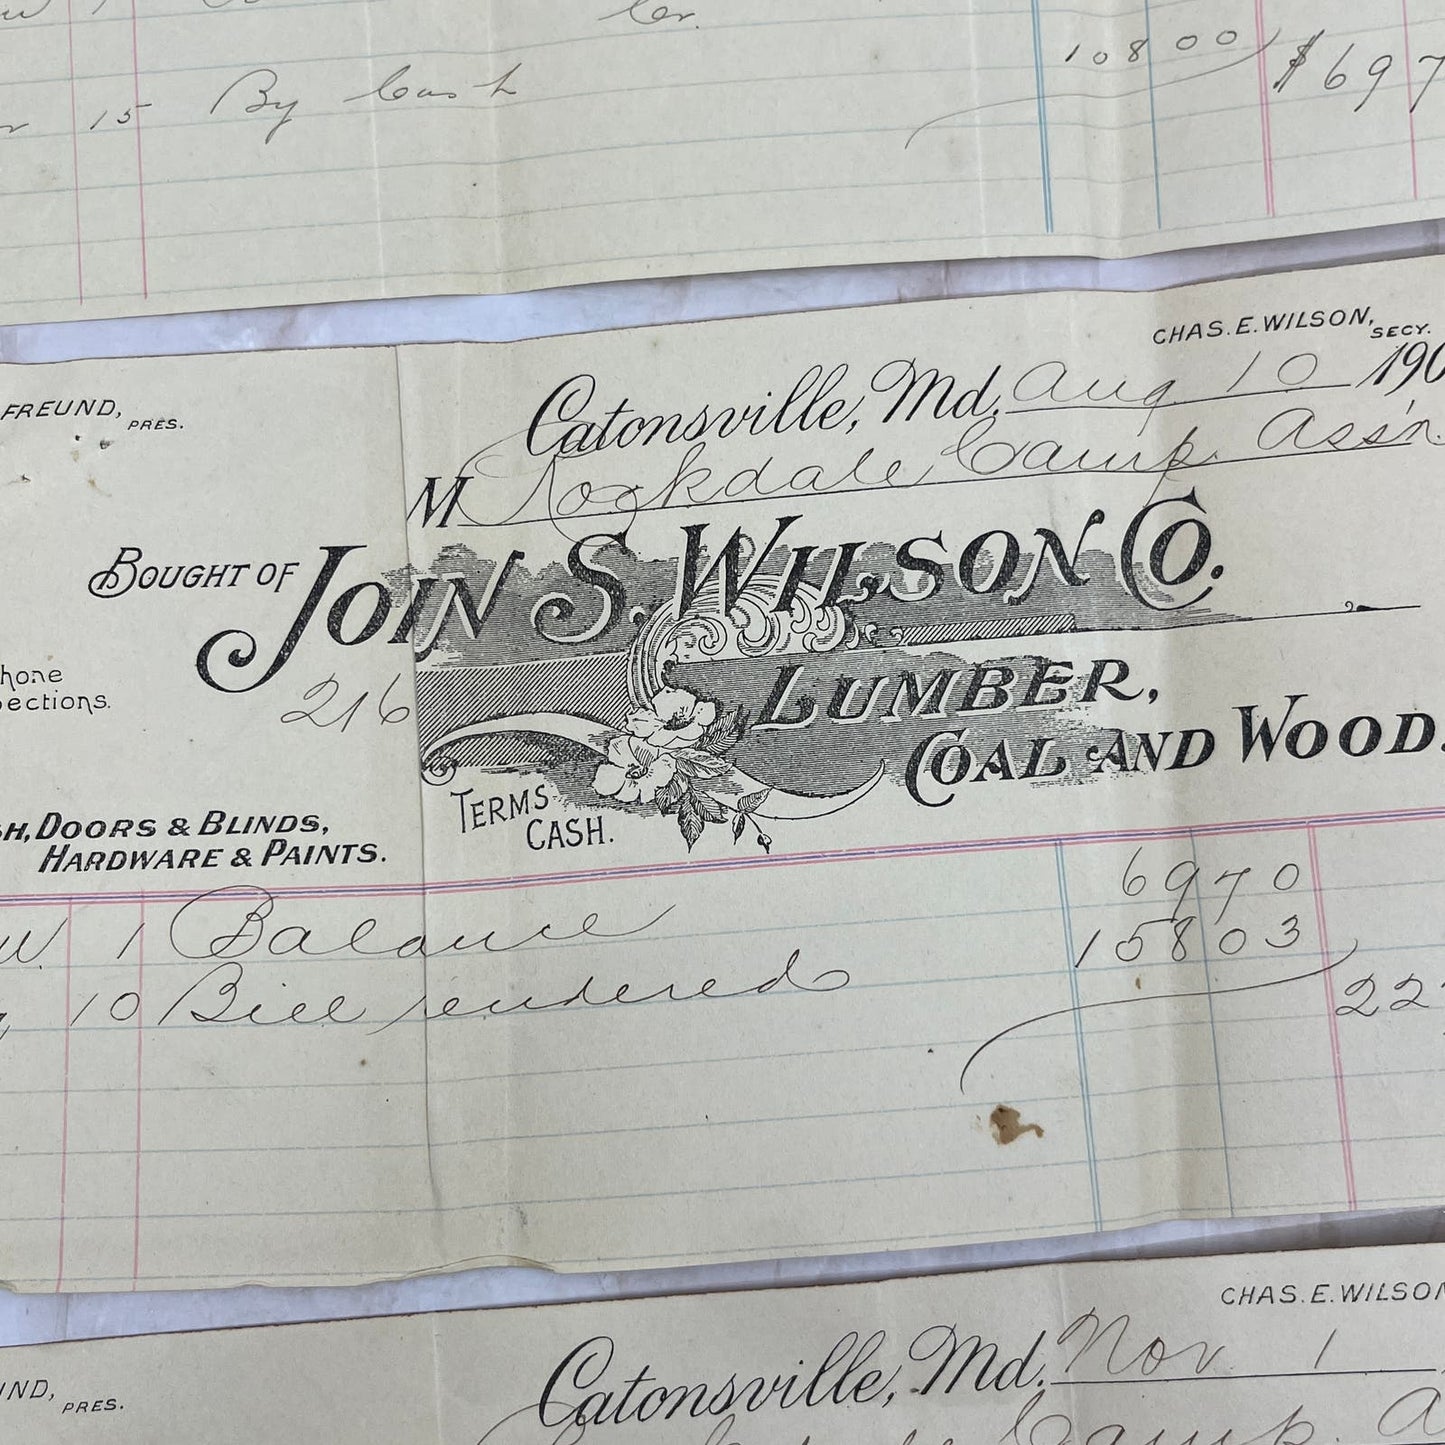 Cr.
15 By Cash 108 00 $697
CHAS. E. WILSON, SECY.
FREUND, PRES.
Catonsville, Md. Aug 10 190
M Rockdale Camp. Ass'n.
BOUGHT OF JOHN S. WILSON CO.
216
LUMBER,
COAL AND WOOD.
TERMS CASH.
DOORS & BLINDS,
HARDWARE & PAINTS.
1 Balance 69 70
10 Bill rendered 158 03 22
CHAS. E. WILSON
PRES.
Catonsville, Md. Nov 1
Camp. A